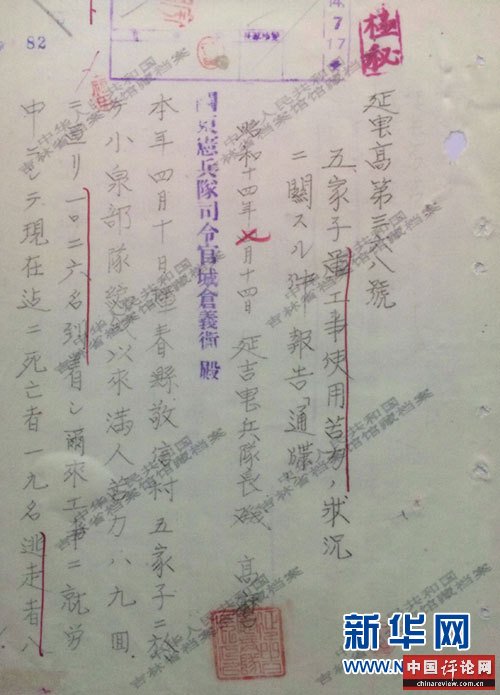 極秘
14.7.17
82
延憲高第三六八號
五家子軍工事使用苦力ノ狀況
ニ關スル件報告「通牒」
昭和十四年七月十四日 延吉憲兵隊長磯 高
關東憲兵隊司令官城倉義衛 殿
本年四月十日琿春縣敬信村五家子ニ於
テ小泉部隊 以來滿人苦力八九回
ニ亘リ一〇二六名到着シ爾來工事ニ就勞
中ニシテ現在迄ニ死亡者一九名逃走者八
中华人民共和国
吉林省档案馆馆藏档案
新华网
中国评论网
chinareview.cn